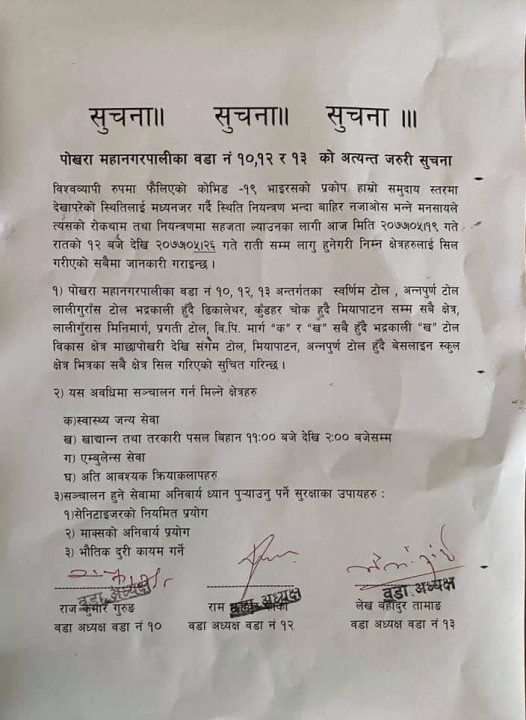 सुचना॥ सुचना॥ सुचना ॥।
पोखरा महानगरपालिका वडा नं १०,१२ र १३ को अत्यन्त जरुरी सुचना
विश्वव्यापी रुपमा फैलिएको कोभिड -१९ भाइरसको प्रकोप हाम्रो समुदाय स्तरमा
देखापरेको स्थितिलाई मध्यनजर गर्दै स्थिति नियन्त्रण भन्दा बाहिर नजाओस भन्ने मनसायले
त्यसको रोकथाम तथा नियन्त्रणमा सहजता ल्याउनका लागी आज मिति २०७७।०५।१९ गते
रातको १२ बजे देखि २०७७।०५।२६ गते राती सम्म लागु हुनेगरी निम्न क्षेत्रहरुलाई सिल
गरीएको सबैमा जानकारी गराइन्छ ।
१) पोखरा महानगरपालिका वडा नं १०, १२, १३ अन्तर्गतका स्वर्णिम टोल , अन्नपुर्ण टोल
लालीगुराँस टोल भद्रकाली हुँदै ढिकालेथर, कुँडहर चोक हुदै मियापाटन सम्म सबै क्षेत्र,
लालीर्गुरास मिनिमार्ग, प्रगती टोल, वि.पि. मार्ग “क” र “ख” सबै हुँदै भद्रकाली “ख” टोल
विकास क्षेत्र माछापोखरी देखि संगम टोल, मियापाटन, अन्नपुर्ण टोल हुँदै बेसलाइन स्कुल
क्षेत्र भित्रका सबै क्षेत्र सिल गरिएको सुचित गरिन्छ ।
२) यस अवधिमा सञ्चालन गर्न मिल्ने क्षेत्रहरु
क)स्वास्थ्य जन्य सेवा
ख) खाद्यान्न तथा तरकारी पसल बिहान ११:०० बजे देखि २:०० बजेसम्म
ग) एम्बुलेन्स सेवा
घ) अति आवश्यक क्रियाकलापहरु
३)सञ्चालन हुने सेवामा अनिवार्य ध्यान पुऱ्याउनु पर्ने सुरक्षाका उपायहरु :
१)सेनिटाइजरको नियमित प्रयोग
२) मास्कको अनिवार्य प्रयोग
३) भौतिक दुरी कायम गर्ने
वडा अध्यक्ष वडा अध्यक्ष वडा अध्यक्ष
राज कुमार गुरुङ राम लेख बहादुर तामाङ
वडा अध्यक्ष वडा नं १० वडा अध्यक्ष वडा नं १२ वडा अध्यक्ष वडा नं १३